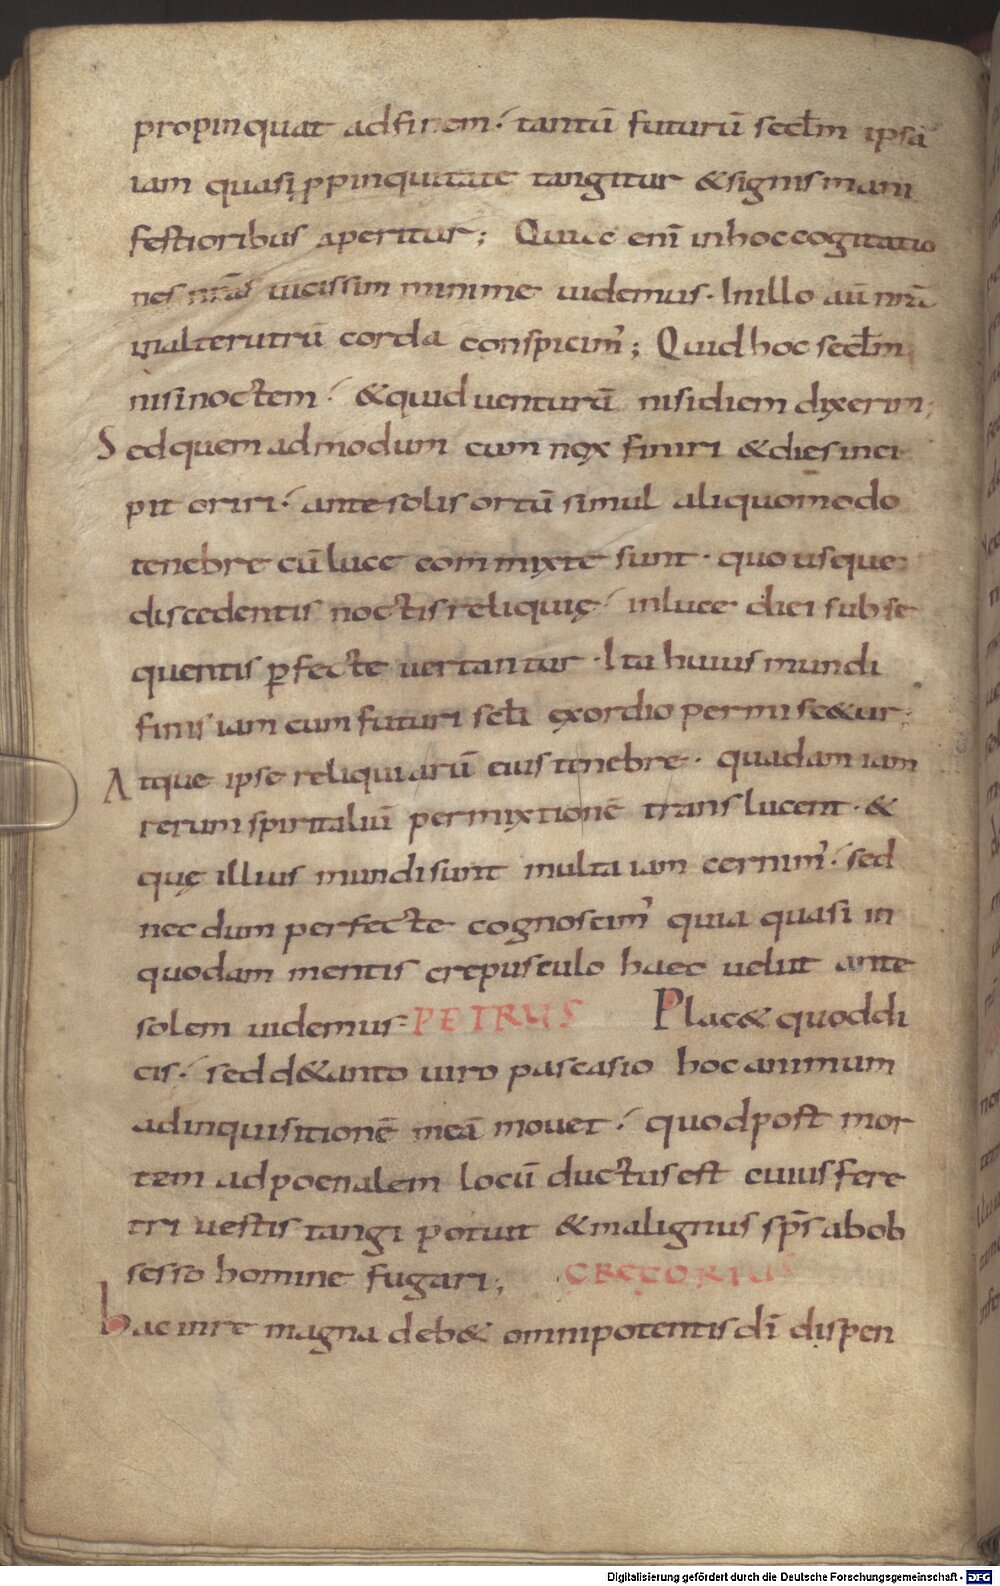 propinquat adfinem· tantū futurū secl̄m ipsā
iam quasi ꝓpinquitate tangitur &signis mani
festioribus aperitur; Quia enī inhoc cogitatio
nes nr̄as uicissim minime uidemus· Inillo aū nr̄a
inalterutrū corda conspicim᾽; Quid hoc secl̄m
nisi noctem· &quid uenturū nisidiem dixerim;
Sed quem ad modum cum nox finiri &dies inci
pit oriri· ante solis ortū simul aliquomodo
tenebre cū luce commixte sunt· quo usque
discedentis noctis reliquię inluce diei subse
quentis ꝑfecte uertantur· Ita huius mundi
finis iam cum futuri scl̄i exordio permisc&ur;
Atque ipse reliquiarū eius tenebre· quadam iam
rerum spiritaliū permixtionē translucent· &
quę illius mundi sunt multa iam cernim᾽· sed
nec dum perfecte cognoscim᾽ quia quasi in
quodam mentis crepusculo haec uelut ante
solem uidemus: PETRUS Plac& quod di
cis· sed d&anto uiro pascasio hoc animum
adinquisitionē meā mouet· quod post mor
tem ad poenalem locū ductus est cuius fere
tri uestis tangi potuit &malignus sp̄s abob
sesso homine fugari; GREGORIUS
hac inre magna deb& omnipotentis dī dispen
Digitalisierung gefördert durch die Deutsche Forschungsgemeinschaft - DFG